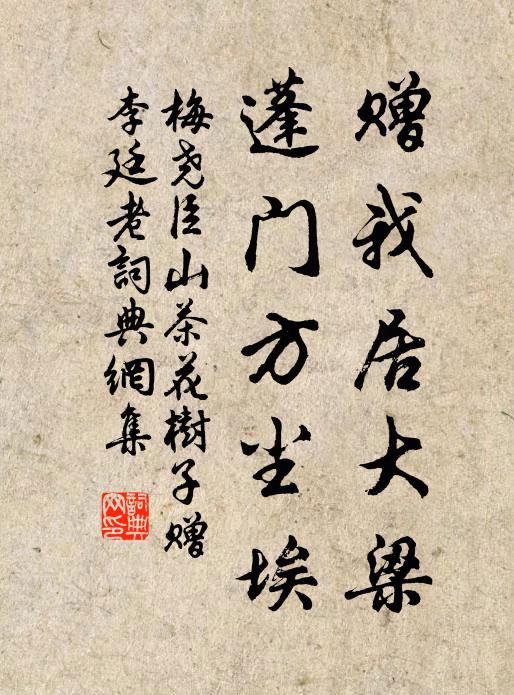 赠我居大梁
蓬门方尘埃
梅尧臣山茶花樹子赠
李廷老詞典網集
詞典
网印